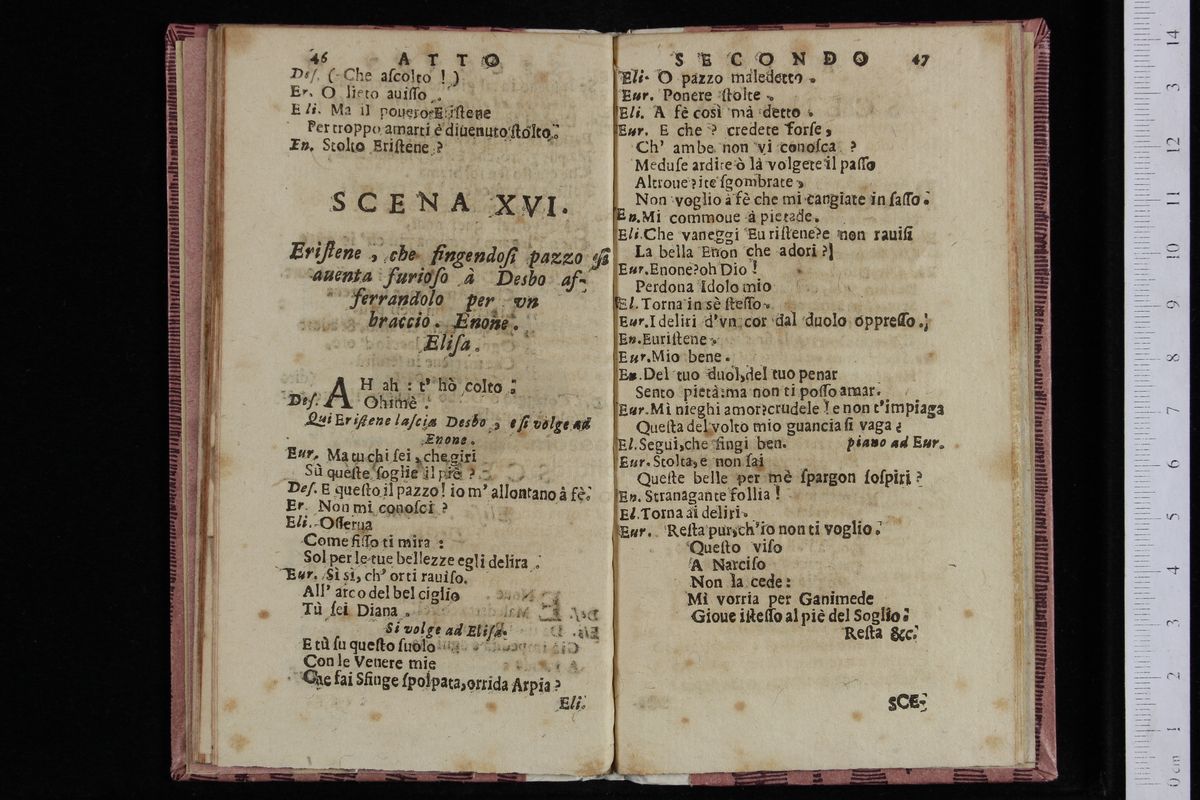 46 ATTO
Des. (Che aſcolto!)
Er. O lieto auiſſo.
Eli. Ma il pouero Eriſtene
Per troppo amarti è diuenuto ſtolto.
En. Stolto Eriſtene?
SCENA XVI.
Eriſtene, che fingendoſi pazzo ſi
auenta furioſo à Desbo af-
ferrandolo per vn
braccio. Enone.
Eliſa.
AH ah: t' hò colto:
Des. Ohimè!
Qui Eriſtene laſcia Desbo, e ſi volge ad
Enone.
Eur. Ma tu chi ſei, che giri
Sù queſte ſoglie il piè?
Des. E queſto il pazzo! io m' allontano â fè.
Er. Non mi conoſci?
Eli. Oſſerua
Come fiſſo ti mira:
Sol per le tue bellezze egli delira.
Eur. Sì sì, ch' or ti rauiſo.
All' arco del bel ciglio
Tù ſei Diana.
Si volge ad Eliſa.
E tù ſu queſto ſuolo
Con le Venere mie
Che fai Sfinge ſpolpata, orrida Arpia?
Eli.
SECONDO 47
Eli. O pazzo maledetto.
Eur. Ponere ſtolte.
Eli. A fè così mà detto.
Eur. E che? credete forſe,
Ch' ambe non vi conoſca?
Meduſe ardite ò là volgete il paſſo
Altroue? ite ſgombrate,
Non voglio â fè che mi cangiate in ſaſſo.
En. Mi commoue â pietade.
Eli. Che vaneggi Euriſtene? e non rauiſi
La bella Enon che adori?
Eur. Enone? oh Dio!
Perdona Idolo mio
El. Torna in sè ſteſſo.
Eur. I deliri d'vn cor dal duolo oppreſſo.
En. Euriſtene.
Eur. Mio bene.
En. Del tuo duol, del tuo penar
Sento pietà: ma non ti poſſo amar.
Eur. Mi nieghi amor? crudele! e non t'impiaga
Queſta del volto mio guancia ſi vaga?
El. Segui, che fingi ben. piano ad Eur.
Eur. Stolta, e non ſai
Queſte belle per mè ſpargon ſoſpiri?
En. Stranagante follia!
El. Torna ai deliri.
Eur. Reſta pur, ch'io non ti voglio.
Queſto viſo
A Narciſo
Non la cede:
Mi vorria per Ganimede
Gioue iſteſſo al piè del Soglio.
Reſta &c.
SCE-
14
13
12
11
10
9
8
7
6
5
4
3
2
1
0 cm